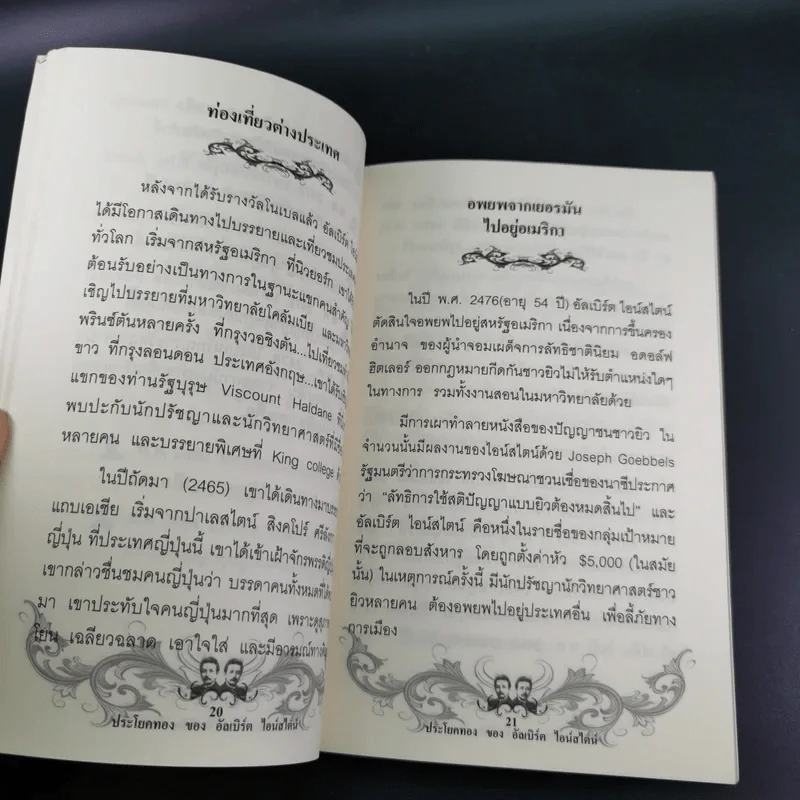 ท่องเที่ยวต่างประเทศ
หลังจากได้รับรางวัลโนเบลแล้ว อัลเบิร์ต
ได้มีโอกาสเดินทางไปบรรยายและเที่ยวชม
ทั่วโลก เริ่มจากสหรัฐอเมริกา ที่นิวยอร์ก
ต้อนรับอย่างเป็นทางการในฐานะแขกคนสำคัญ
เชิญไปบรรยายที่มหาวิทยาลัยโคลัมเบีย
พรินซ์ตันหลายครั้ง ที่กรุงวอชิงตัน...ไปเที่ยวชม
ขาว ที่กรุงลอนดอน ประเทศอังกฤษ...เขาได้รับ
แขกของท่านรัฐบุรุษ Viscount Haldane
พบปะกับนักปรัชญาและนักวิทยาศาสตร์ที่มี
หลายคน และบรรยายพิเศษที่ King college
ในปีถัดมา (2465) เขาได้เดินทางมา
แถบเอเชีย เริ่มจากปาเลสไตน์ สิงคโปร์
ญี่ปุ่น ที่ประเทศญี่ปุ่นนี้ เขาได้เข้าเฝ้าจักรพรรดิ
เขากล่าวชื่นชมคนญี่ปุ่นว่า บรรดาคนทั้งหมดที่
มา เขาประทับใจคนญี่ปุ่นมากที่สุด เพราะดูสุภาพ
โยน เฉลียวฉลาด เอาใจใส่ และมีอารมณ์ทาง
20
ประโยคทอง ของ อัลเบิร์ต ไอน์สไตน์
อพยพจากเยอรมัน
ไปอยู่อเมริกา
ในปี พ.ศ. 2476(อายุ 54 ปี) อัลเบิร์ต ไอน์สไตน์
ตัดสินใจอพยพไปอยู่สหรัฐอเมริกา เนื่องจากการขึ้นครอง
อำนาจ ของผู้นำจอมเผด็จการลัทธิชาตินิยม อดอล์ฟ
ฮิตเลอร์ ออกกฎหมายกีดกันชาวยิวไม่ให้รับตำแหน่งใดๆ
ในทางการ รวมทั้งงานสอนในมหาวิทยาลัยด้วย
มีการเผาทำลายหนังสือของปัญญาชนชาวยิว ใน
จำนวนนั้นมีผลงานของไอน์สไตน์ด้วย Joseph Goebbels
รัฐมนตรีว่าการกระทรวงโฆษณาชวนเชื่อของนาซีประกาศ
ว่า "ลัทธิการใช้สติปัญญาแบบยิวต้องหมดสิ้นไป" และ
อัลเบิร์ต ไอน์สไตน์ คือหนึ่งในรายชื่อของกลุ่มเป้าหมาย
ที่จะถูกลอบสังหาร โดยถูกตั้งค่าหัว $5,000 (ในสมัย
นั้น) ในเหตุการณ์ครั้งนี้ มีนักปรัชญานักวิทยาศาสตร์ชาว
ยิวหลายคน ต้องอพยพไปอยู่ประเทศอื่น เพื่อลี้ภัยทาง
การเมือง
21
ประโยคทอง ของ อัลเบิร์ต ไอน์สไตน์